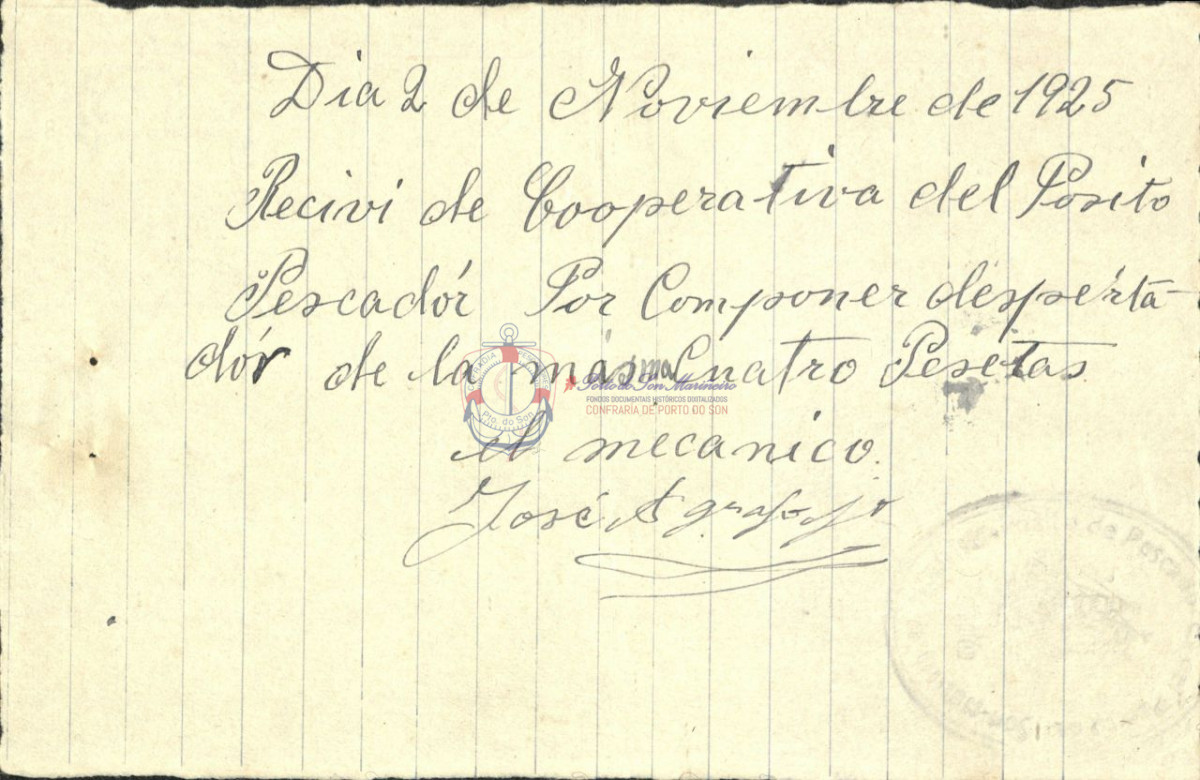 Dia 2 de Noviembre de 1925
Recivi de Cooperativa del Posito
Pescadór Por Componer despérta-
dór de la más ma Cuatro Pesetas
el mecanico.
José
Porto do Son Marineiro
FONDOS DOCUMENTAIS HISTÓRICOS DIXITALIZADOS
CONFRARÍA DE PORTO DO SON
Pto. do Son